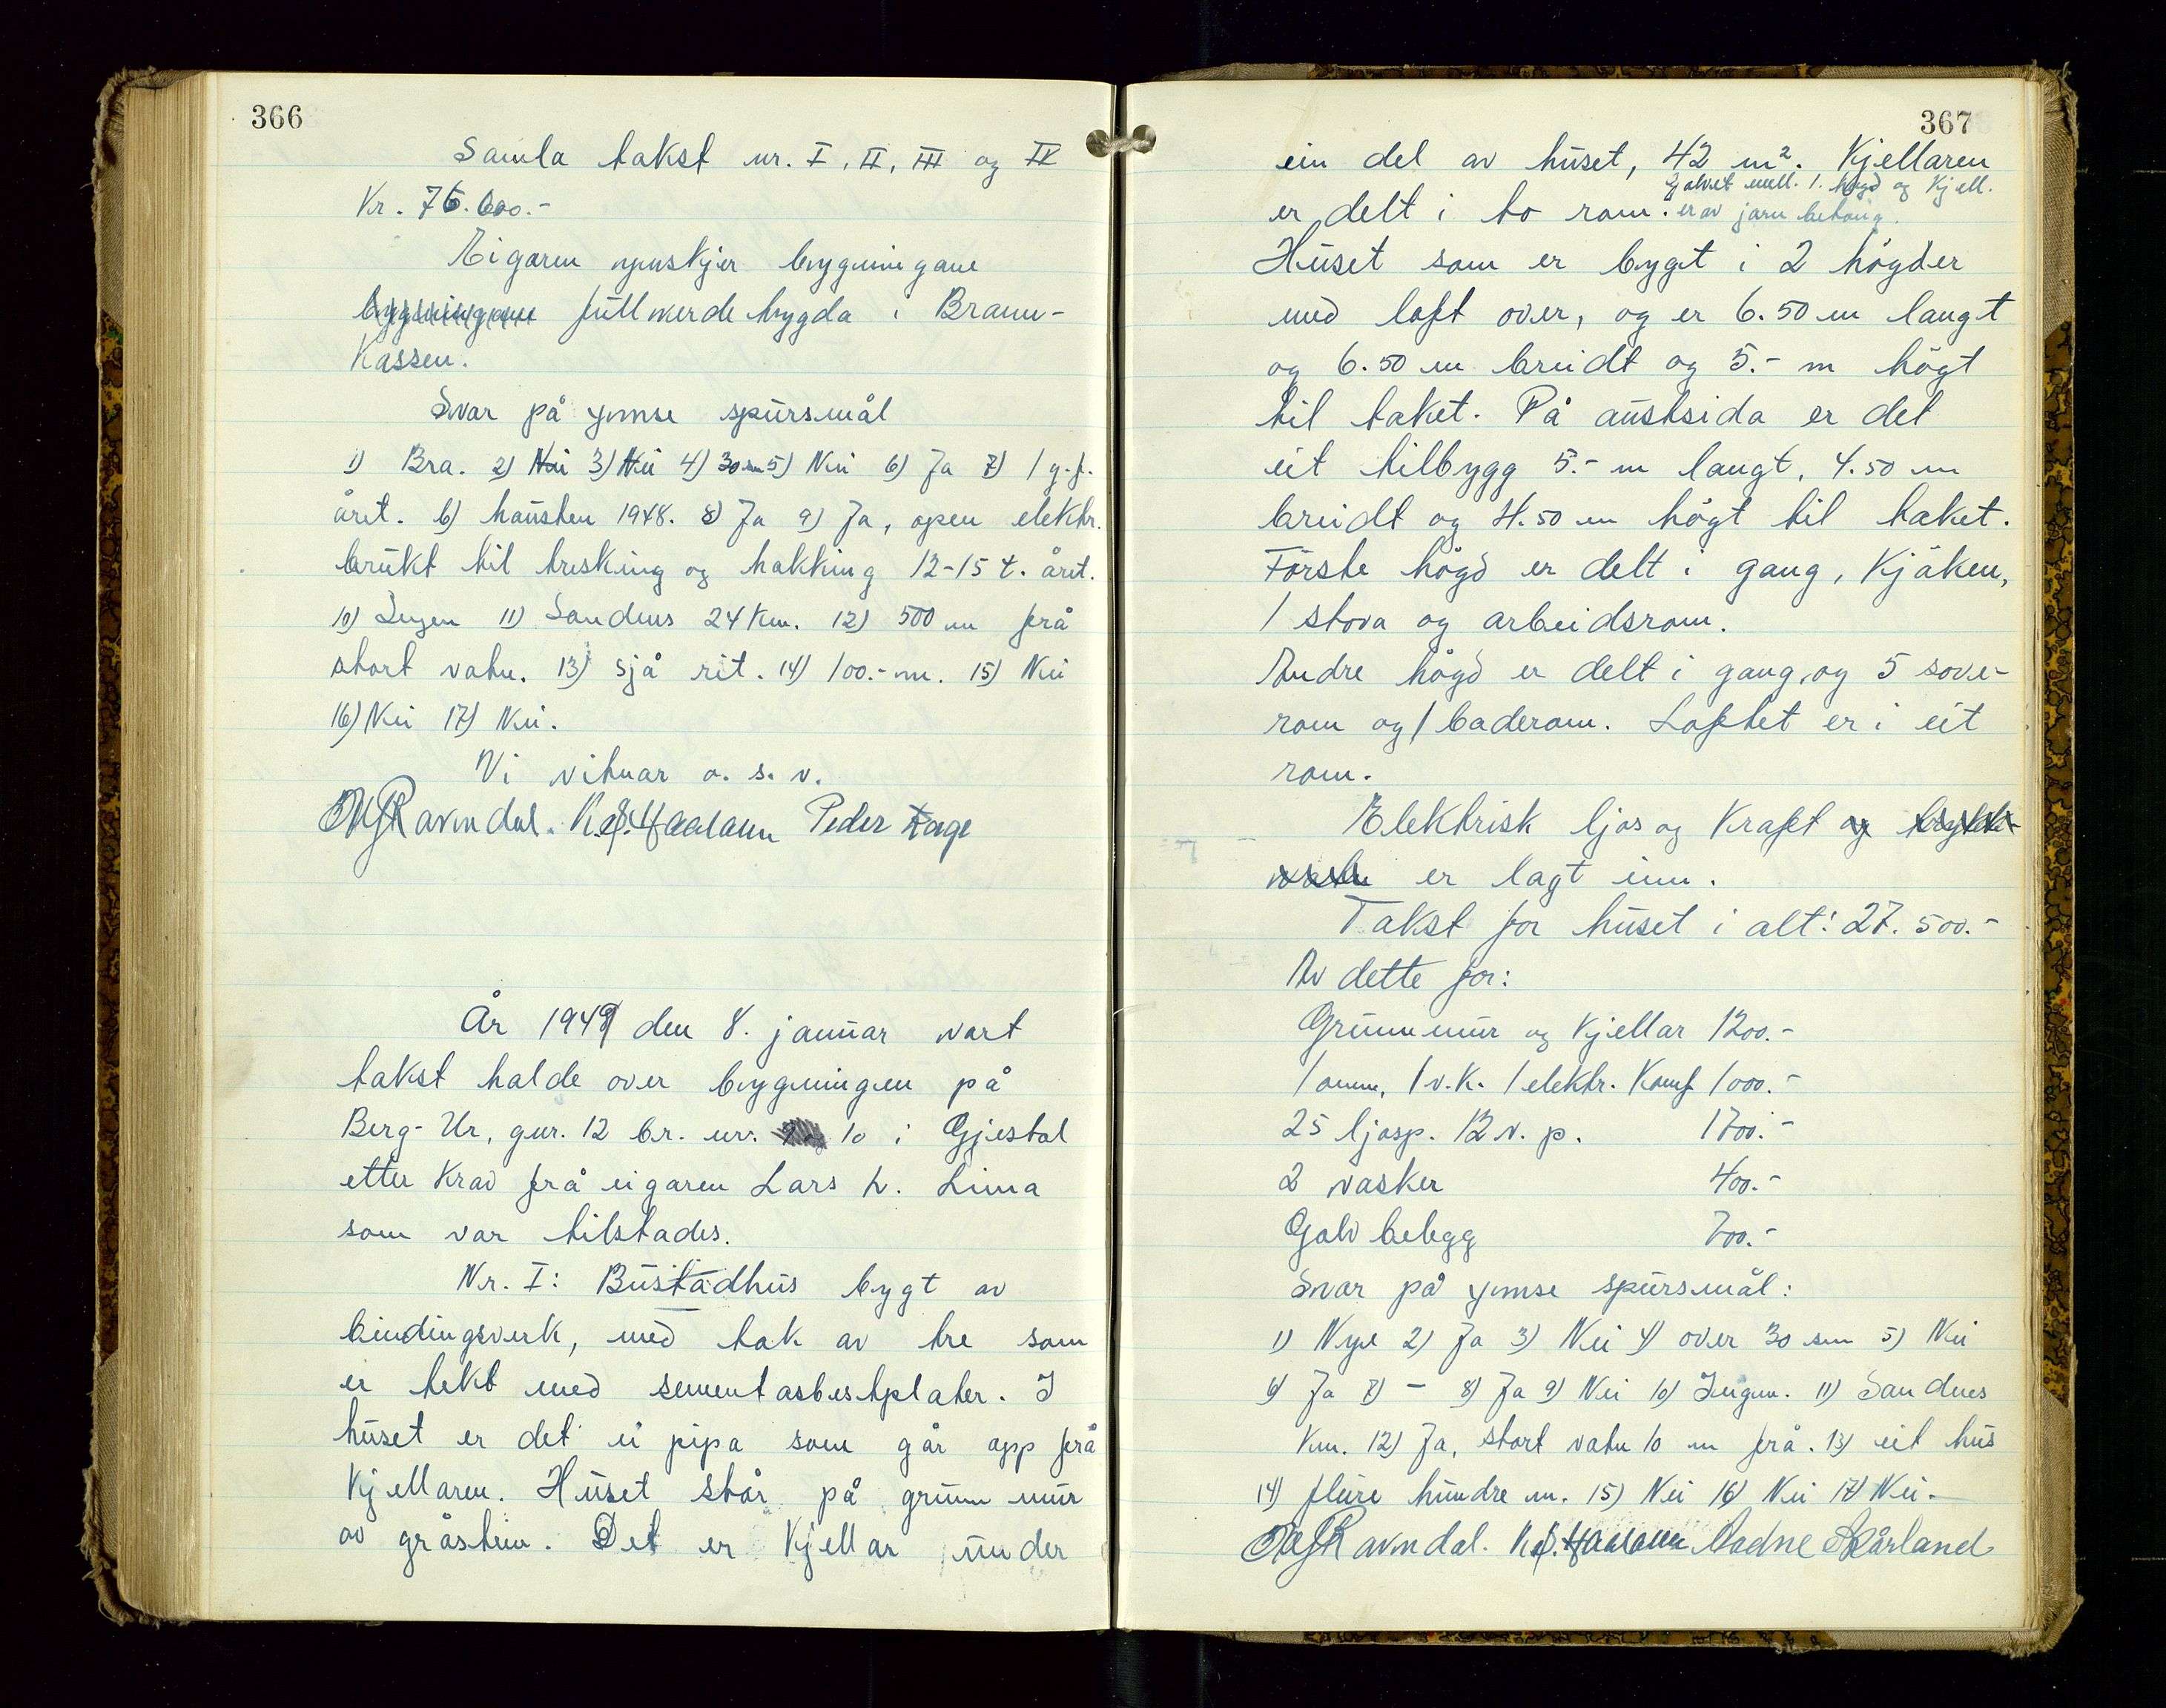 366
Samla takst nr. I, II, III og IV
Kr. 76.600.-
Eigaren ynskjer bygningane
bygningane fullverde bygda i Brann-
Kassen.
Svar på ymse spursmål
1) Bra. 2) Nei 3) Nei 4) 30 sm 5) Nei 6) Ja 7) 1 g. f.
året. b) hausten 1948. 8) Ja 9) Ja, open elektr.
brukt til tresking og hakking 12-15 t. året.
10) Ingen 11) Sandnes 24 Km. 12) 500 m frå
stort vatn. 13) sjå rit. 14) 100.- m. 15) Nei
16) Nei 17) Nei.
Vi vitnar o. s. v.
Ravndal. Haaland Peder
År 1949 den 8. januar vart
takst halde over bygningen på
Berg-Ur, gnr. 12 br. nr. 10 i Gjestal
etter Krav frå eigaren Lars L. Lima
som var tilstades.
Nr. I: Bustadhus bygt av
bindingsverk, med tak av tre som
er tekt med sementasbestplater. I
huset er det ei pipa som går opp frå
Kjellaren. Huset står på grunn mur
av gråstein. Det er Kjellar under
367
ein del av huset, 42 m². Kjellaren
Golvet mell. 1. høgd og Kjell.
er delt i to rom. er av jarn betong.
Huset som er bygt i 2 högder
med loft over, og er 6.50 m langt
og 6.50 m breidt og 5.- m högt
til taket. På austsida er det
eit tilbygg 5.- m langt, 4.50 m
breidt og 4.50 m högt til taket.
Förste högd er delt i gang, Kjöken,
1 stova og arbeidsrom.
Andre högd er delt i gang, og 5 sove-
rom og 1 baderom. Loftet er i eit
rom.
Elektrisk ljos og Kraft og
er lagt inn.
Takst for huset i alt: 27.500.-
Av dette for:
Grunnmur og Kjellar 1200.-
1 omn, 1 v.k. 1 elektr. Komf 1000.-
25 ljosp. 12 v. p. 1700.-
2 vasker 400.-
Golv belegg 700.-
Svar på ymse spursmål:
1) Nye 2) Ja 3) Nei 4) over 30 sm 5) Nei
6) Ja 7) - 8) Ja 9) Nei 10) Ingen. 11) Sandnes
Km. 12) Ja, stort vatn 10 m frå. 13) eit hus
14) fleire hundre m. 15) Nei 16) Nei 17) Nei.
Ravndal. Haaland Aadne Skårland